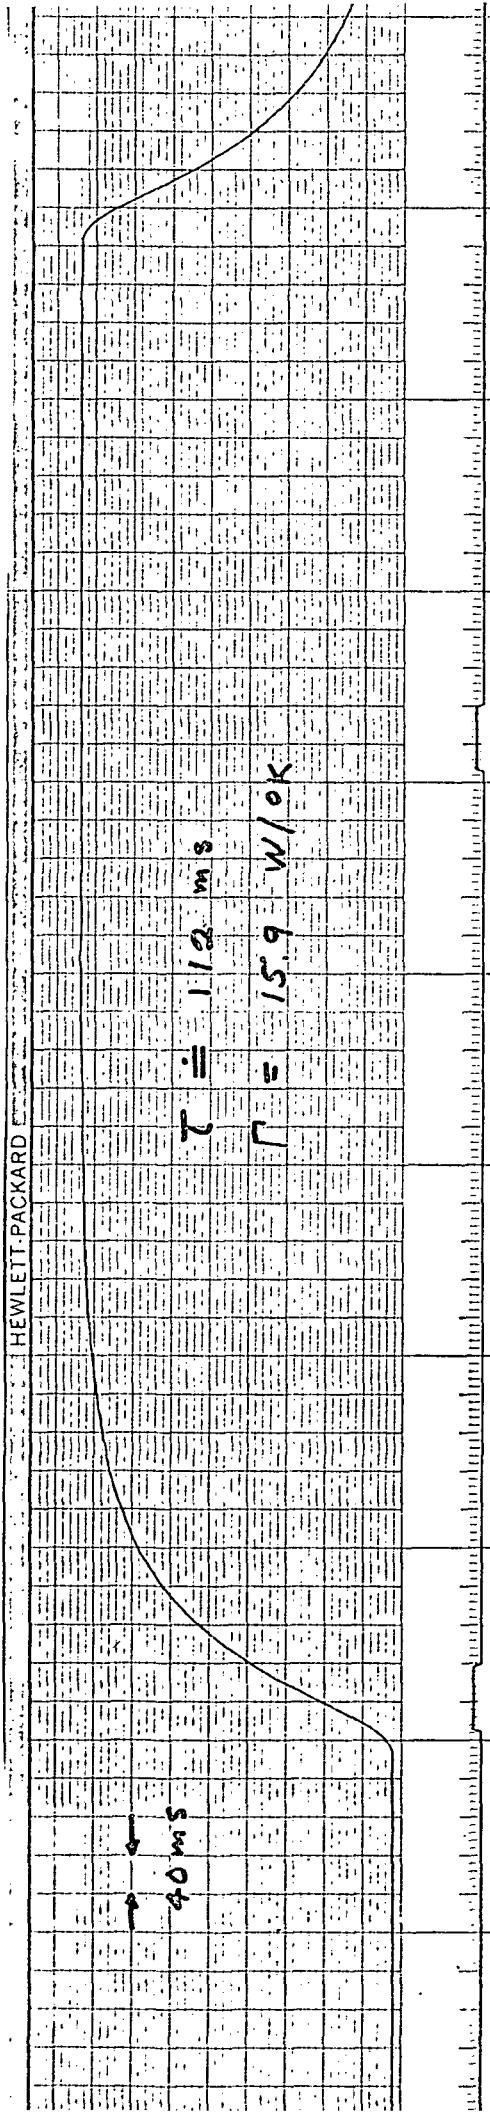 HEWLETT-PACKARD
τ ≐ 112 ms
Γ = 15.9 W/°K
40 ms